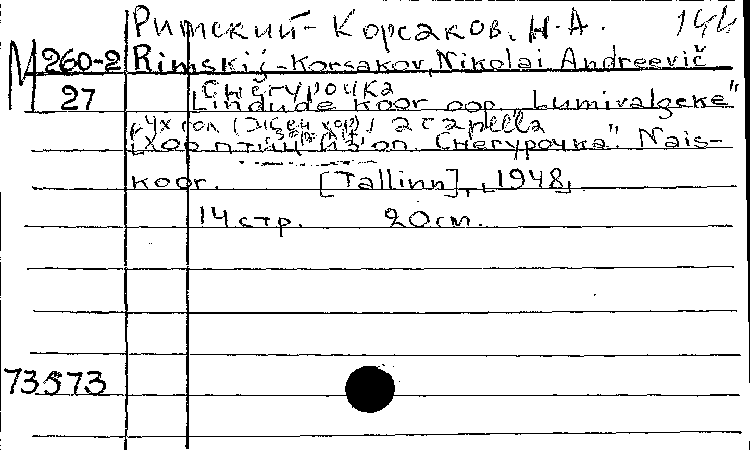 Римский-Корсаков, Н.А. 144
M 260-2 Rimskij-Korsakov, Nikolai Andreevič
Снегурочка
27 Lindude koor oop. „Lumivalgeke"
4х гол (жен хор) a capella
(Хор птиц из оп. Снегурочка". Nais-
koor. [Tallinn], 1948,
14 стр. 20 cm.
73573